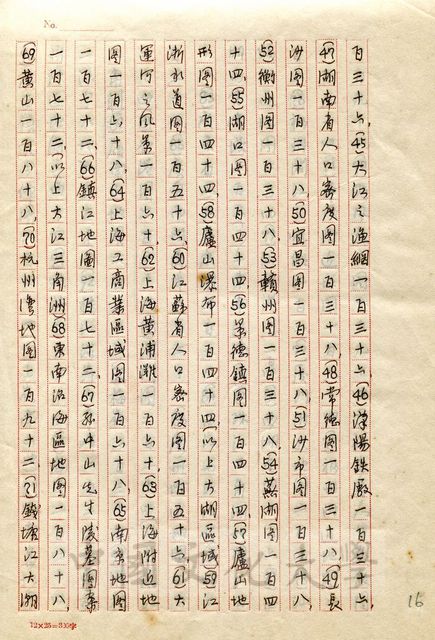 No.
百三十六，(45)大江之漁網一百三十六，(46)漢陽鉄廠一百三十六，
(47)湖南省人口密度圖一百三十八，(48)常德圖一百三十八，(49)長
沙圖一百三十八，(50)宜昌圖一百三十八，(51)沙市圖一百三十八，
(52)衡州圖一百三十八，(53)贛州圖一百三十八，(54)蕪湖圖一百四
十四，(55)湖口圖一百四十四，(56)景德鎮圖一百四十四，(57)廬山地
形圖一百四十四，(58)廬山瀑布一百四十四，以上大湖區域(59)江
浙水道圖一百五十六，(60)江蘇省人口密度圖一百五十六，(61)大
運河之風景一百六十，(62)上海黃浦灘一百六十，(63)上海附近地
圖一百六十八，(64)上海工商業區域圖一百六十八，(65)南京地圖
一百七十二，(66)鎮江地圖一百七十二，(67)孫中山先生陵墓圖案
一百七十二，以上大江三角洲(68)東南沿海區地圖一百八十八，
(69)黃山一百八十八，(70)杭州灣地圖一百九十二，(71)錢塘江大潮
16
12×25=300字
中國文化大學